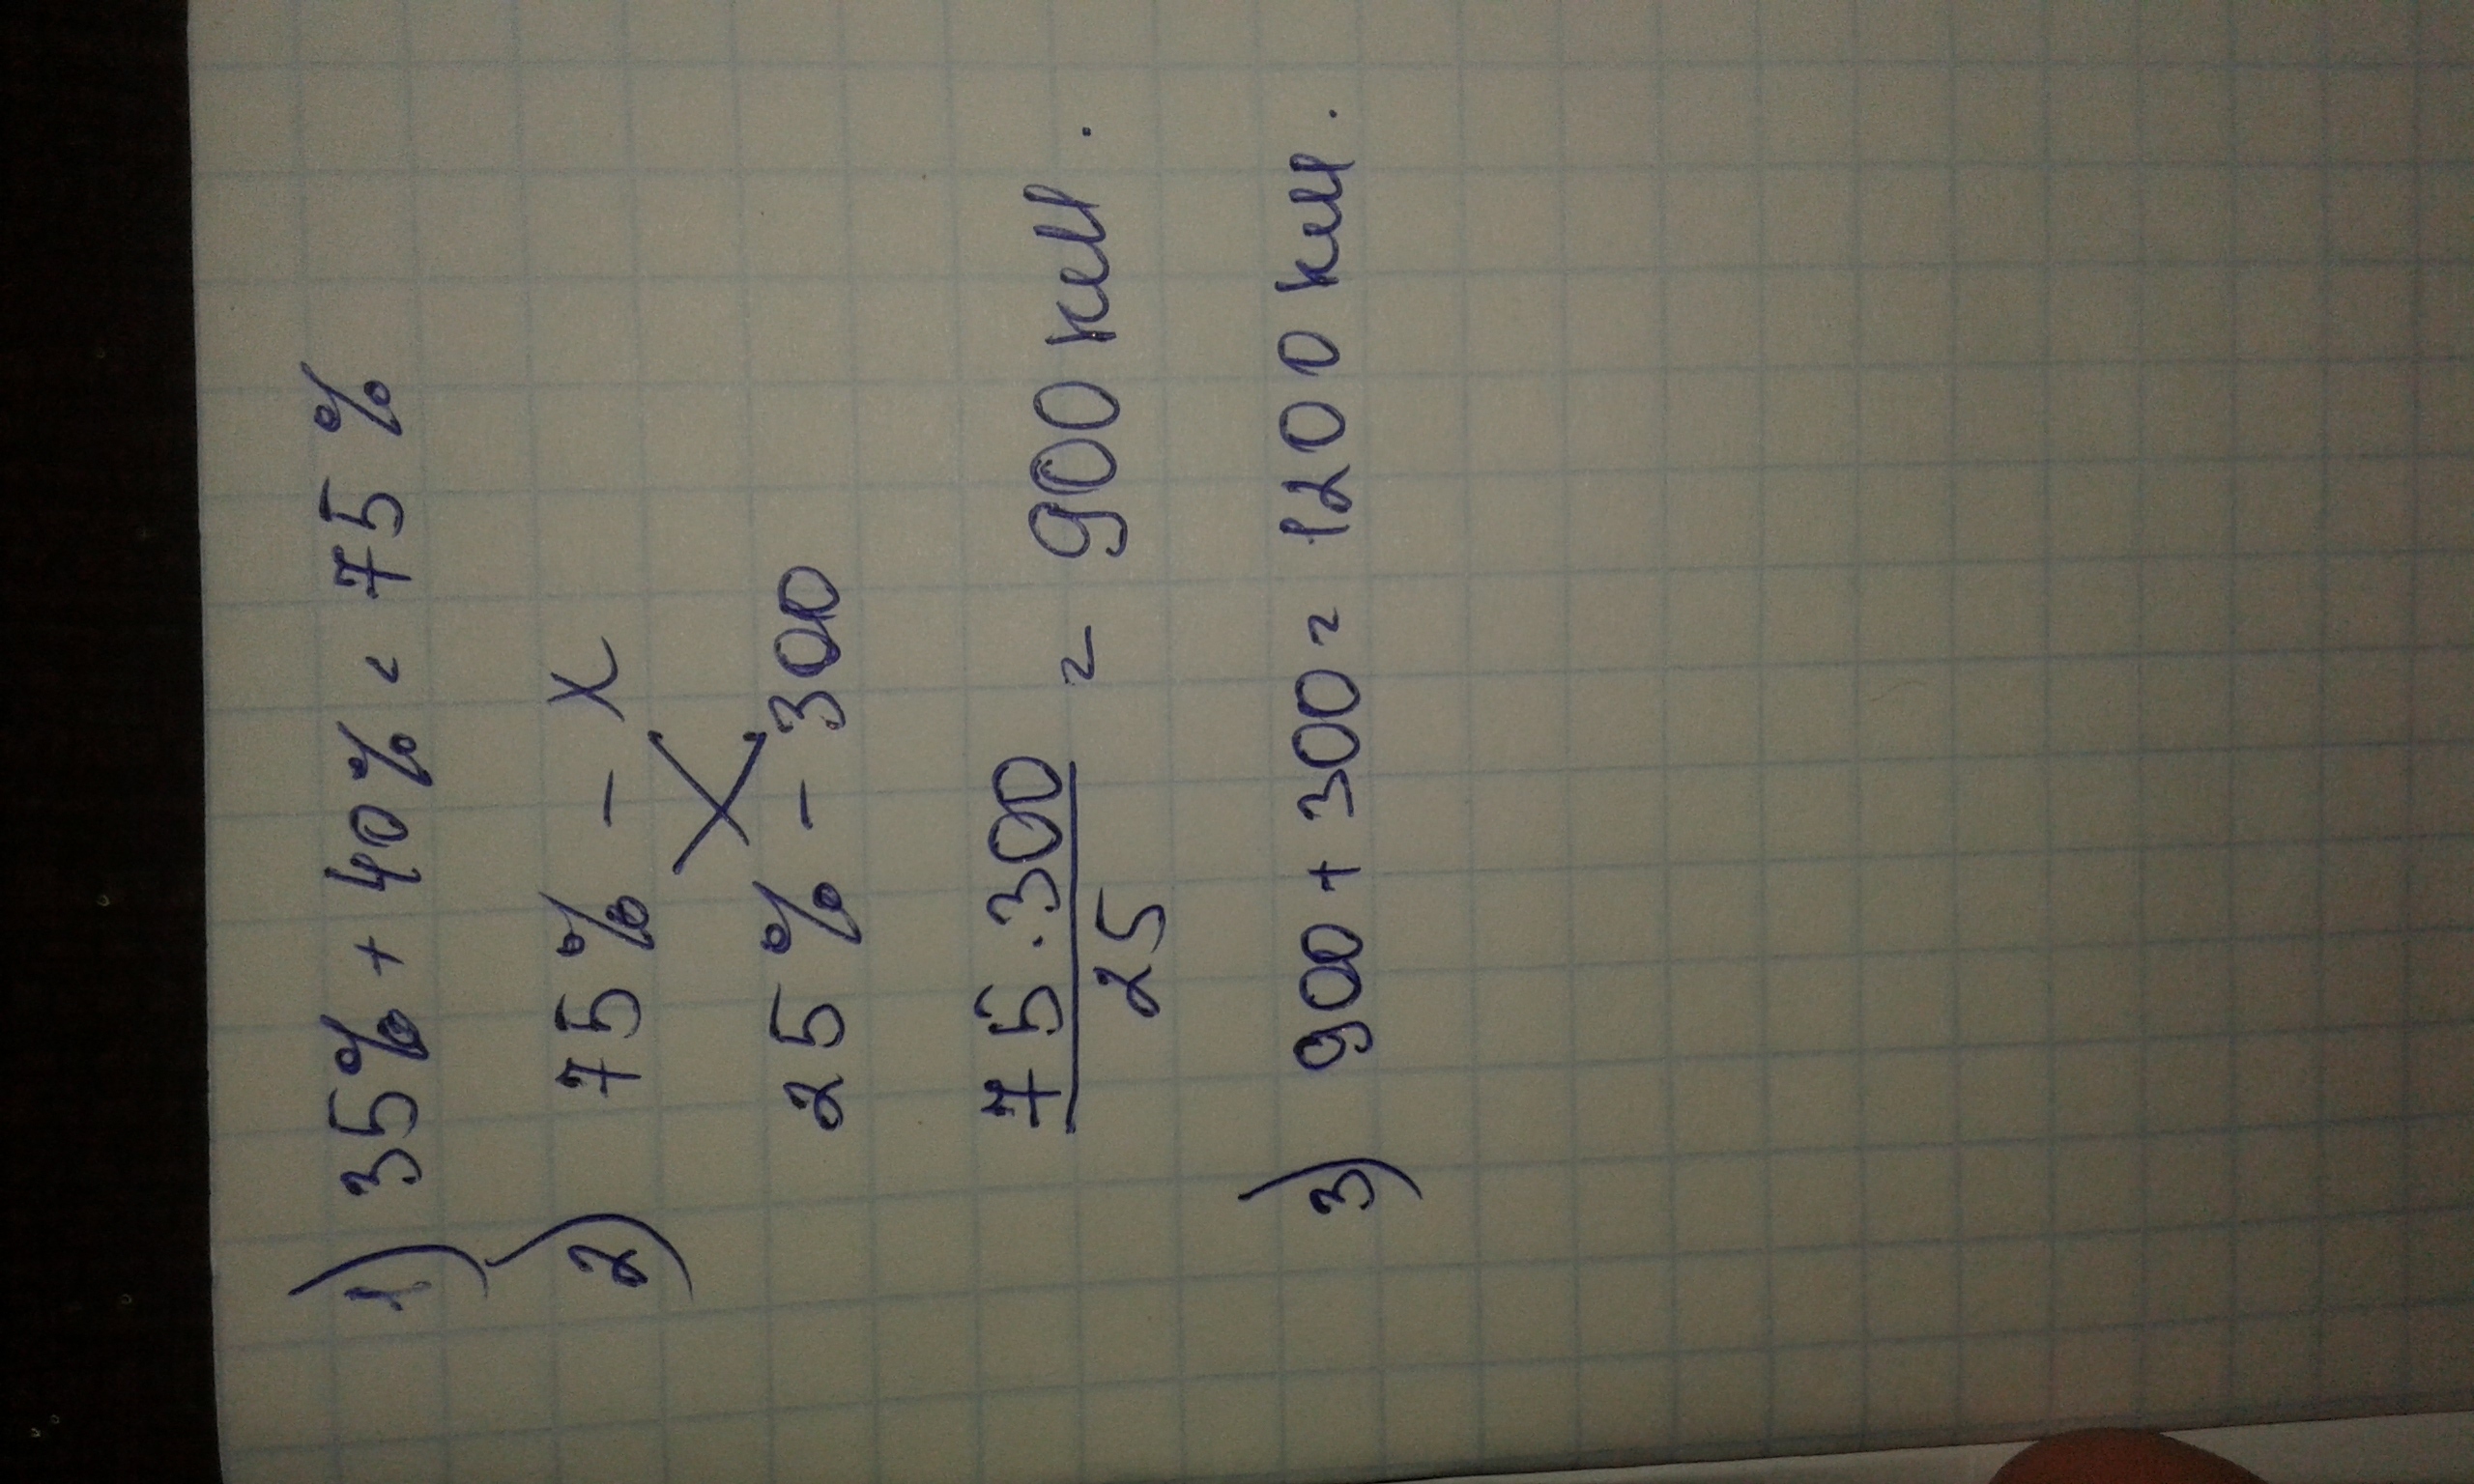 1) 35% + 40% = 75%
2) 75% - x
25% - 300
75·300
25
= 900 км.
3) 900 + 300 = 1200 км.